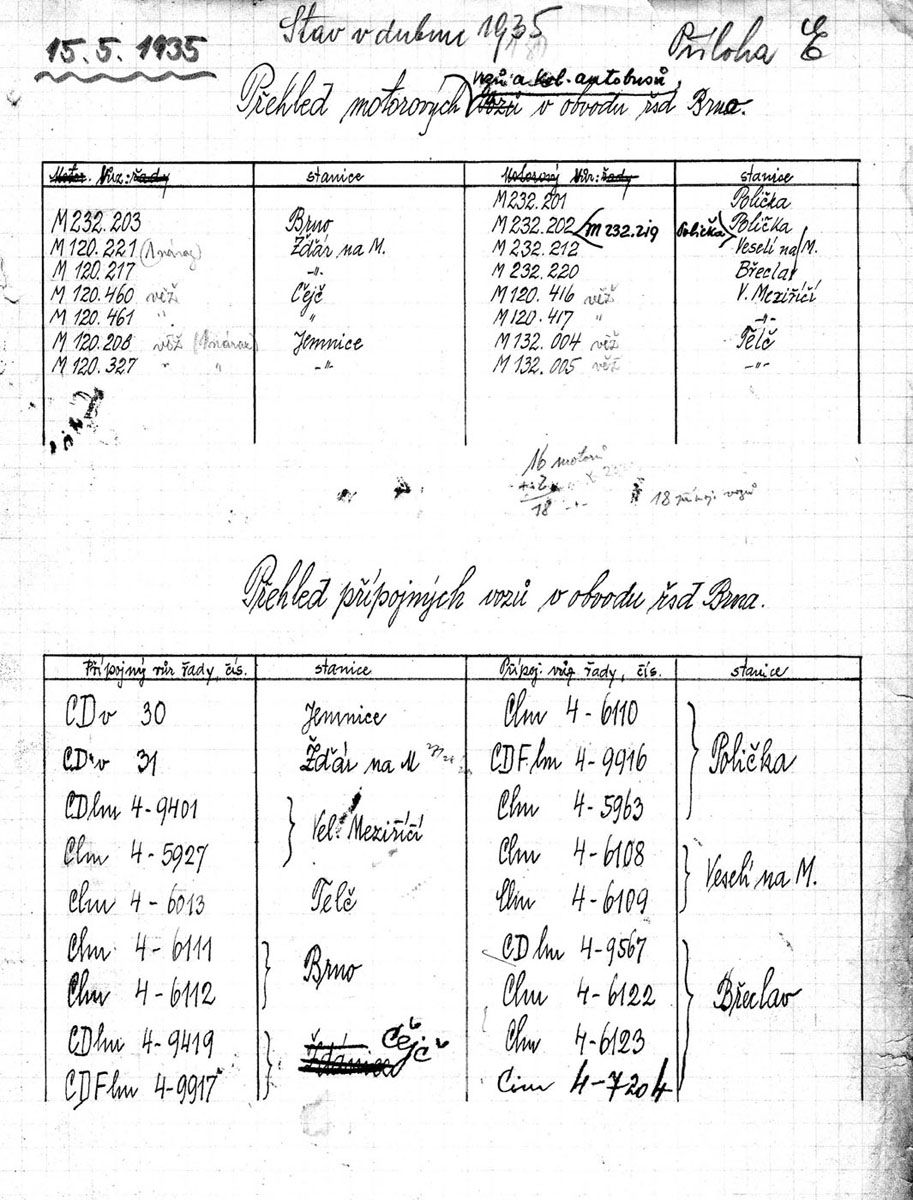 15.5.1935
Stav v dubnu 1935
Příloha E
vozů a kol. autobusů
Přehled motorových vozů v obvodu řsd Brno.
Motor. Vůz: řady stanice Motorový Vůz: řady stanice
M 232.201 Polička
M 232.203 Brno M 232.202 M 232.219 Polička Polička
M 120.221 Žďár na M. M 232.212 Veselí na M.
M 120.217 -„- M 232.220 Břeclav
M 120.460 věž Čejč M 120.416 věž V. Meziříčí
M 120.461 „ „ M 120.417 „ -„-
M 120.208 věž Jemnice M 132.004 věž Telč
M 120.327 „ „ -„- M 132.005 věž -„-
16 motorů
18 -„- 18 příp. vozů
Přehled přípojných vozů v obvodu řsd Brna.
Přípojný vůz řady, čís. stanice Přípoj. vůz řady, čís. stanice
CDv 30 Jemnice Clm 4-6110
CDv 31 Žďár na M CDFlm 4-9916 Polička
CDlm 4-9401 Clm 4-5963
Vel. Meziříčí
Clm 4-5927 Clm 4-6108
Veselí na M.
Clm 4-6013 Telč Clm 4-6109
Clm 4-6111 CDlm 4-9567
Brno
Clm 4-6112 Clm 4-6122 Břeclav
CDlm 4-9419 Čejč Clm 4-6123
Ždánice
CDFlm 4-9917 Cim 4-7204